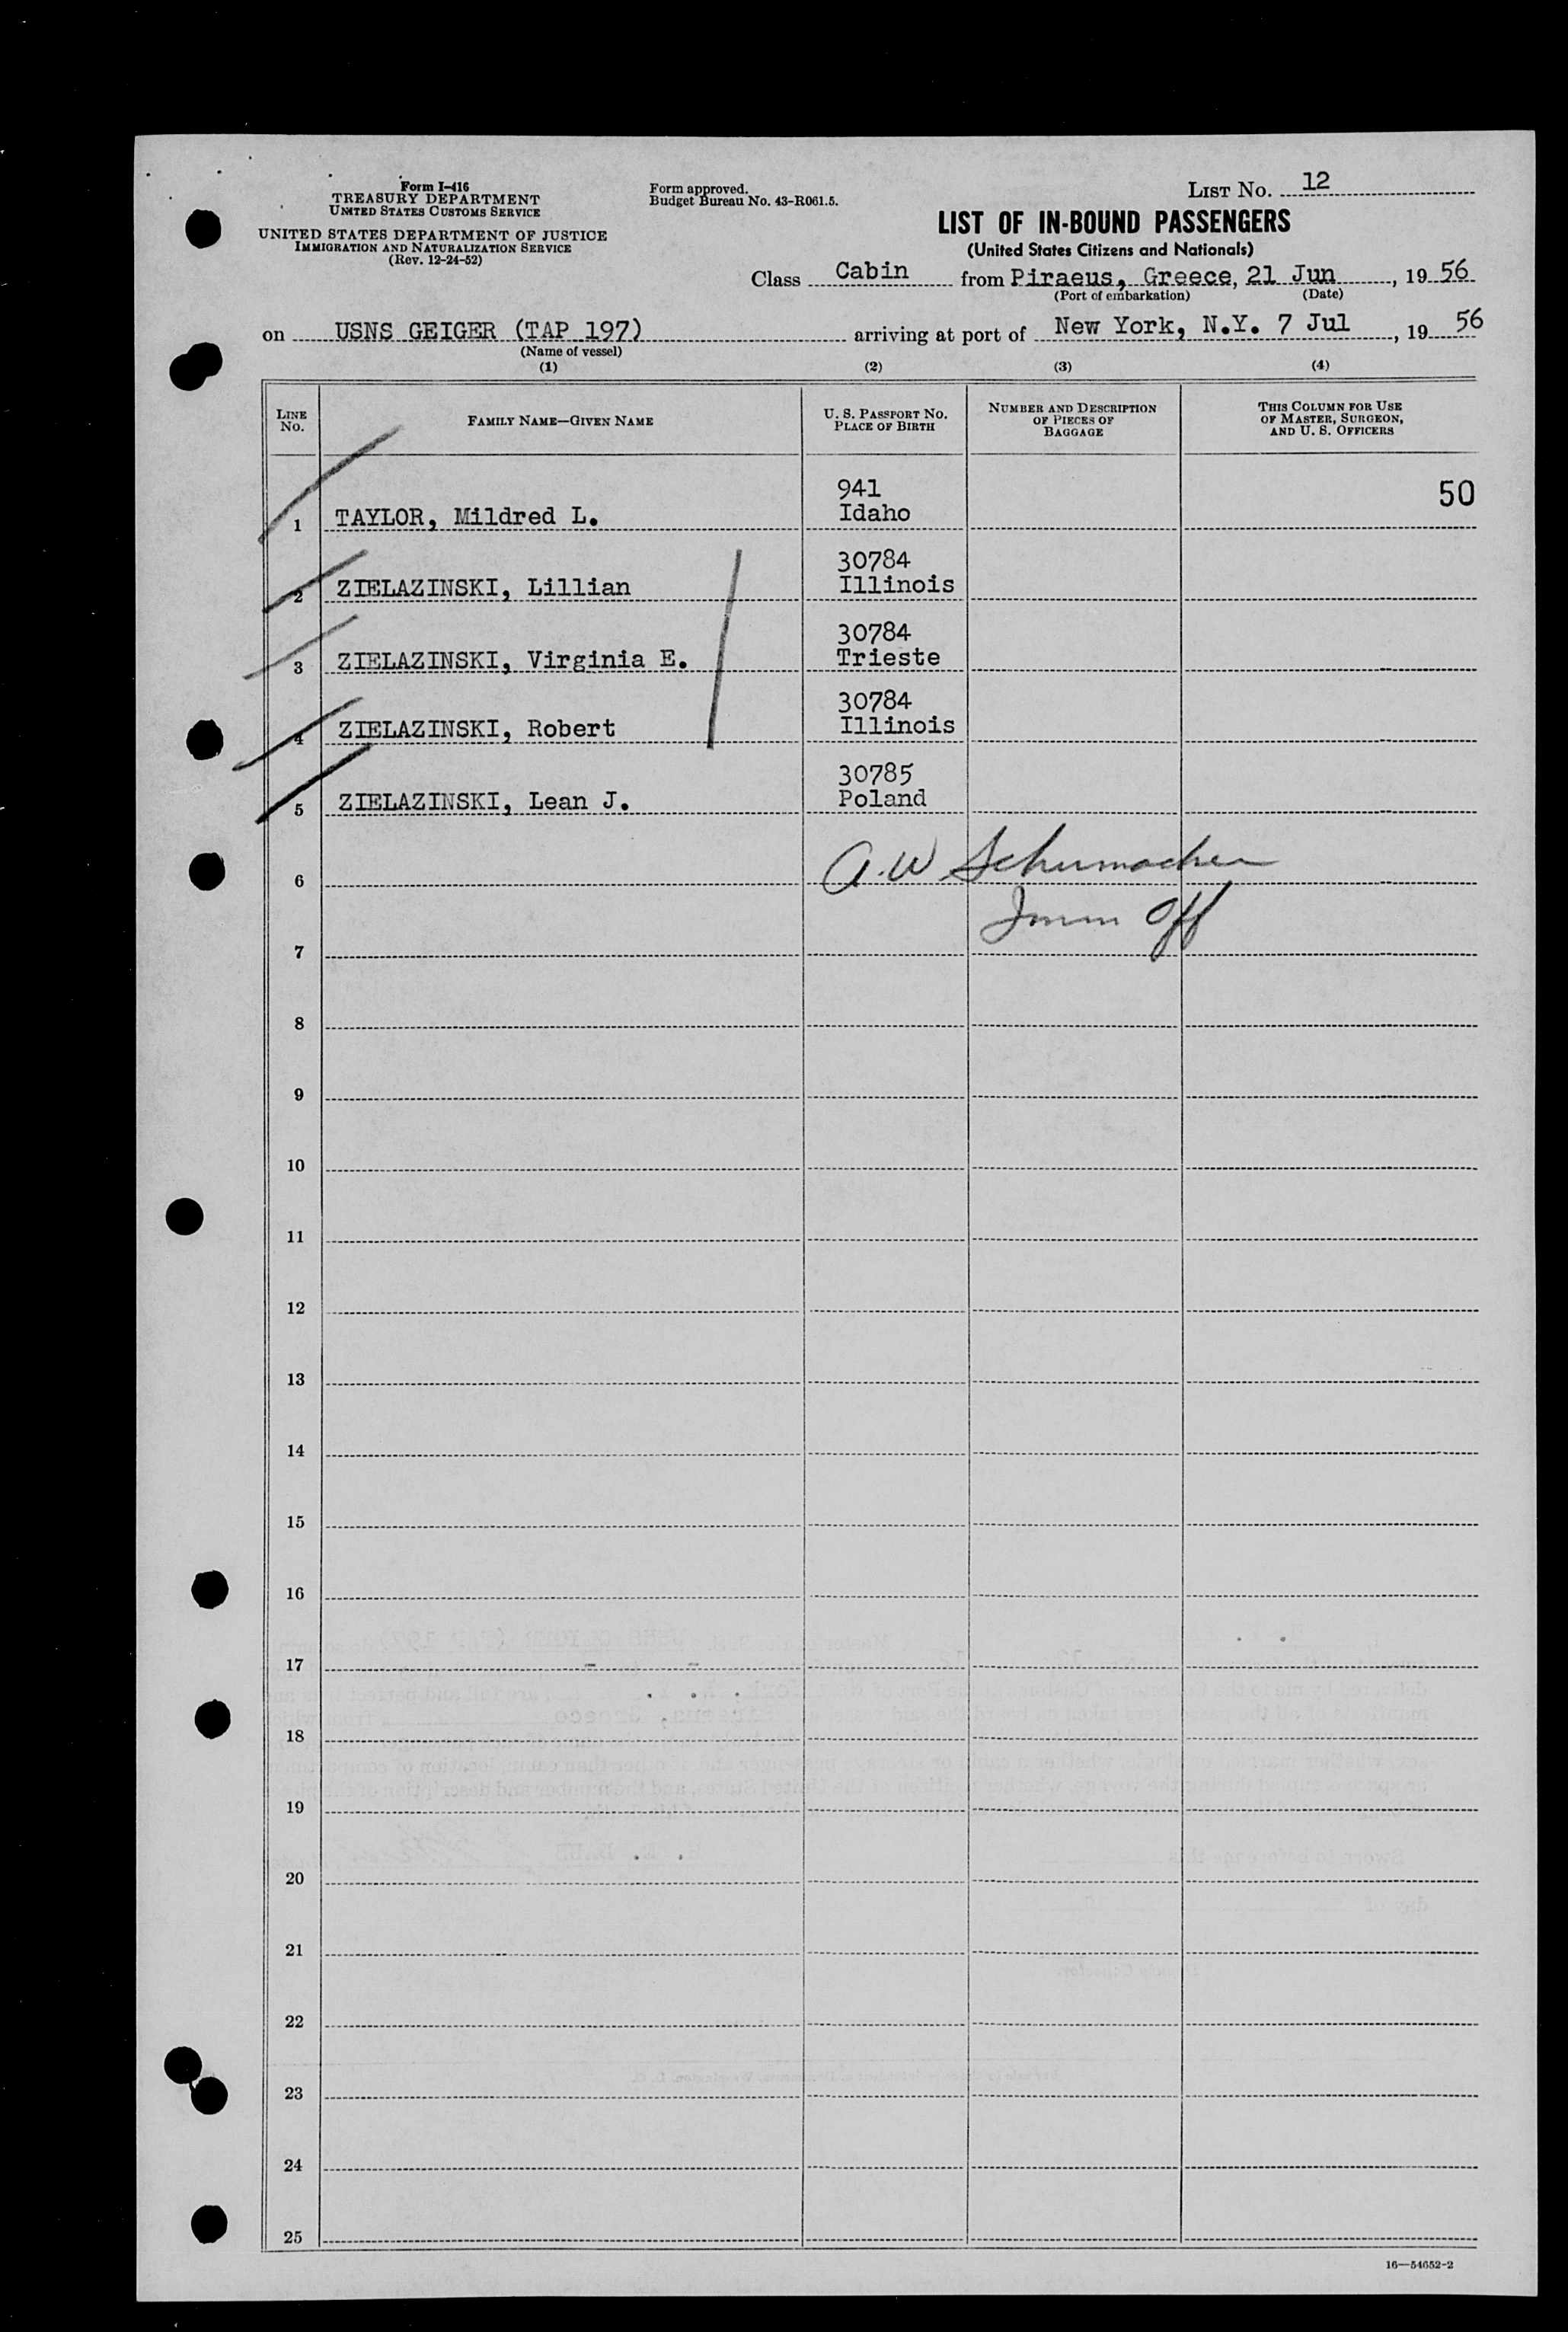 Form I-416
TREASURY DEPARTMENT
UNITED STATES CUSTOMS SERVICE
UNITED STATES DEPARTMENT OF JUSTICE
IMMIGRATION AND NATURALIZATION SERVICE
(Rev. 12-24-52)
Form approved.
Budget Bureau No. 43-R061.5.
LIST NO. 12
LIST OF IN-BOUND PASSENGERS
(United States Citizens and Nationals)
Class Cabin from Piraeus, Greece, 21 Jun, 19 56
(Port of embarkation) (Date)
on USNS GEIGER (TAP 197) arriving at port of New York, N.Y. 7 Jul, 19 56
(Name of vessel)
(1) (2) (3) (4)
LINE NO.
FAMILY NAME—GIVEN NAME
U. S. PASSPORT NO.
PLACE OF BIRTH
NUMBER AND DESCRIPTION
OF PIECES OF
BAGGAGE
THIS COLUMN FOR USE
OF MASTER, SURGEON,
AND U. S. OFFICERS
941 50
1 TAYLOR, Mildred L. Idaho
30784
2 ZIELAZINSKI, Lillian Illinois
30784
3 ZIELAZINSKI, Virginia E. Trieste
30784
4 ZIELAZINSKI, Robert Illinois
30785
5 ZIELAZINSKI, Lean J. Poland
6 A.W Schumacher
Imm Off
7
8
9
10
11
12
13
14
15
16
17
18
19
20
21
22
23
24
25
16—54652-2